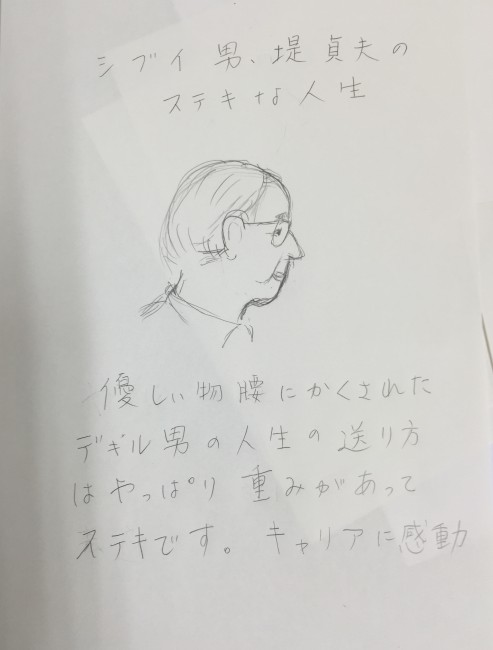 シブイ男、堤貞夫の
ステキな人生
優しい物腰にかくされた
デギル男の人生の送り方
はやっぱり重みがあって
ステキです。キャリアに感動